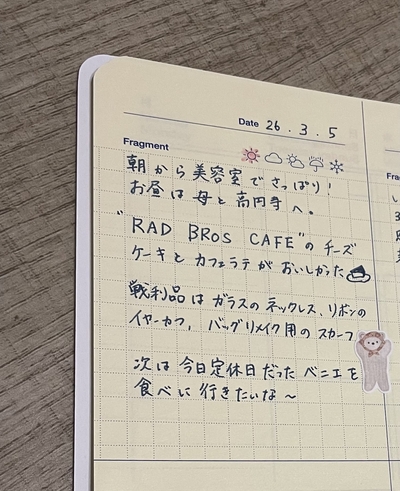 Date 26.3.5
Fragment
朝から美容室でさっぱり!
お昼は母と高円寺へ。
"RAD BROS CAFE"のチーズ
ケーキとカフェラテがおいしかった
戦利品はガラスのネックレス、リボンの
イヤーカフ、バッグリメイク用のスカーフ
次は今日定休日だったベニエを
食べに行きたいな〜
Fra